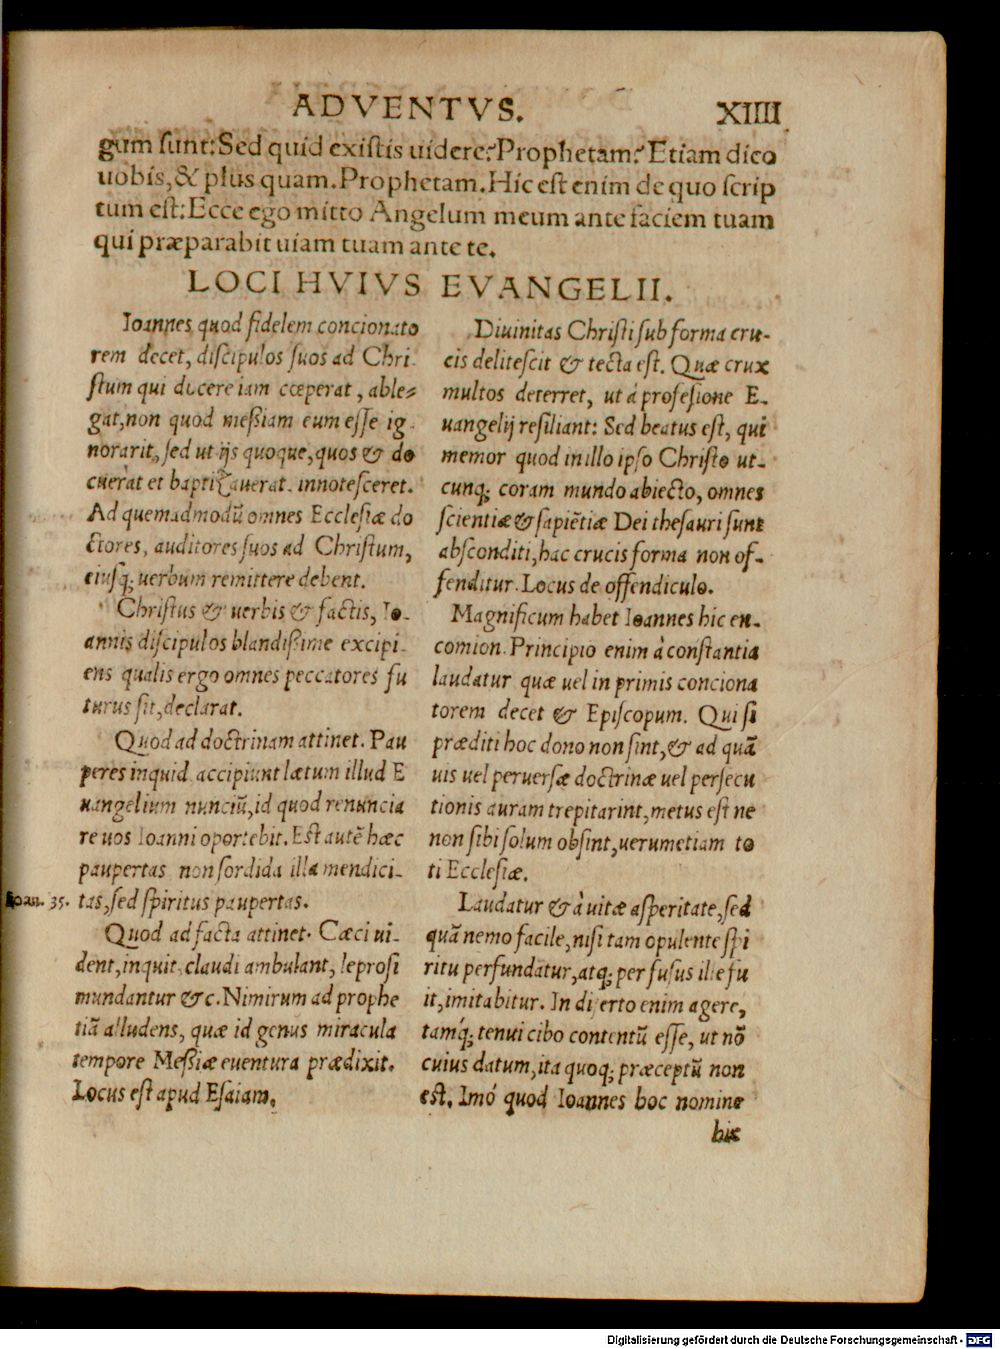 ADVENTVS.
XIIII
gum sunt: Sed quid existis uidere? Prophetam? Etiam dico
uobis, & plus quam. Prophetam. Hic est enim de quo scrip
tum est: Ecce ego mitto Angelum meum ante faciem tuam
qui præparabit uiam tuam ante te.
LOCI HVIVS EVANGELII.
Ioannes quod fidelem concionato
rem decet, discipulos suos ad Chri-
stum qui docere iam cœperat, able-
gat, non quod meßiam eum esse ig-
norarit, sed ut ijs quoque, quos & do
cuerat et baptizauerat, innotesceret.
Ad quemadmodũ omnes Ecclesiæ do
ctores, auditores suos ad Christum,
eiusq; uerbum remittere debent.
Christus & uerbis & factis, Io-
annis discipulos blandißime excipi-
ens qualis ergo omnes peccatores fu
turus sit, declarat.
Quod ad doctrinam attinet. Pau
peres inquid accipiunt lætum illud E
uangelium nunciũ, id quod renuncia
re uos Ioanni oportebit. Est autẽ hæc
paupertas non sordida illa mendici-
Ioan. 35.
tas, sed spiritus paupertas.
Quod ad facta attinet. Cæci ui-
dent, inquit, claudi ambulant, leprosi
mundantur &c. Nimirum ad prophe
tiã alludens, quæ id genus miracula
tempore Meßiæ euentura prædixit.
Locus est apud Esaiam.
Diuinitas Christi sub forma cru-
cis delitescit & tecta est. Quæ crux
multos deterret, ut á profesione E-
uangelij resiliant: Sed beatus est, qui
memor quod in illo ipso Christo ut-
cunq; coram mundo abiecto, omnes
scientiæ & sapiẽtiæ Dei thesauri sunt
absconditi, hac crucis forma non of-
fenditur. Locus de offendiculo.
Magnificum habet Ioannes hic en-
comion. Principio enim à constantia
laudatur quæ uel in primis conciona
torem decet & Episcopum. Qui si
præditi hoc dono non sint, & ad quã
uis uel peruersæ doctrinæ uel persecu
tionis auram trepitarint, metus est ne
non sibi solum obsint, uerumetiam to
ti Ecclesiæ.
Laudatur & à uitæ asperitate, sed
quã nemo facile, nisi tam opulente spi
ritu perfundatur, atq; perfusus ille fu
it, imitabitur. In diserto enim agere,
tamq́; tenui cibo contentũ esse, ut nõ
cuius datum, ita quoq; præceptũ non
est. Imó quod Ioannes hoc nomine
hic
Digitalisierung gefördert durch die Deutsche Forschungsgemeinschaft - DFG